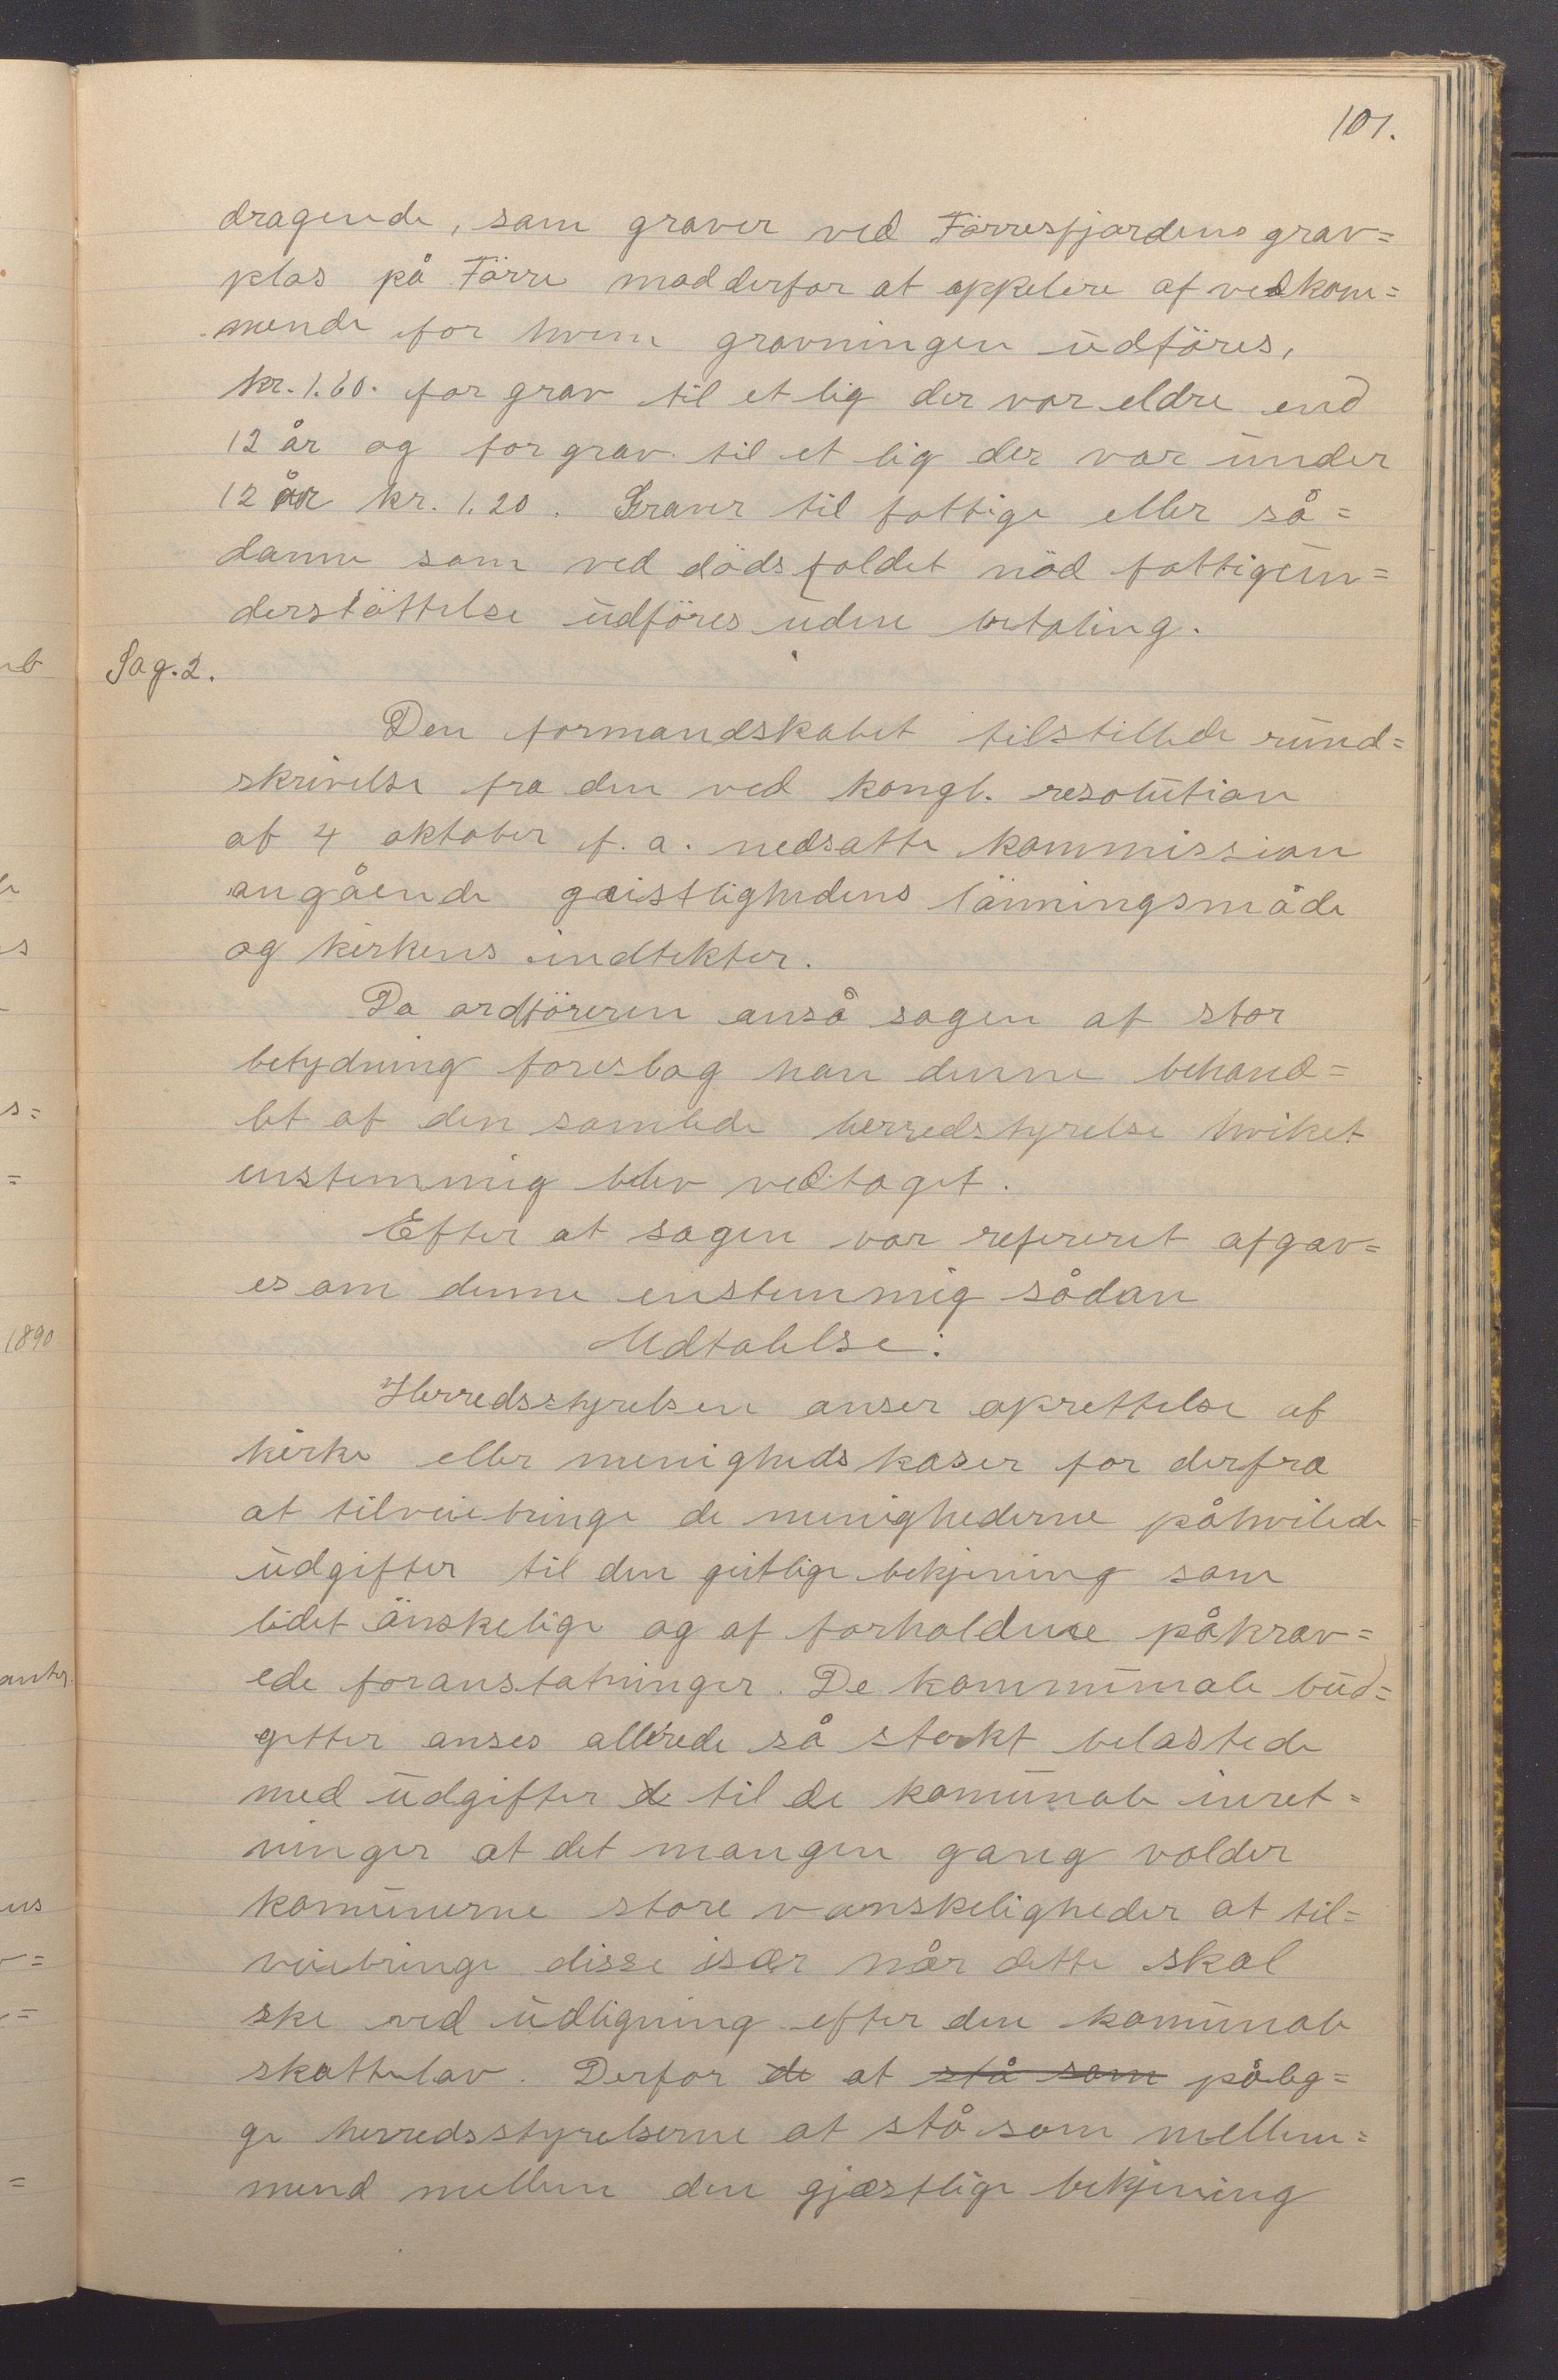 101.
dragende, som graver ved Förresfjordens grav=
plas på Förre mod derfor at oppebere af vedkom=
mende for hvem gravningen udföres,
kr. 1.60. for grav til et lig der var eldre end
12 år og for grav til et lig der var under
12 år kr. 1.20. Graver til fattige eller så=
danne som ved dödsfaldet nöd fattigun=
derstöttelse udföres uden betaling.
Sag. 2.
Den formandskabet tilstillede rund=
skrivelse fra den ved kongl. resolution
af 4 oktober f. a. nedsatte kommission
angående geistlighedens lönningsmåde
og kirkens indtekter.
Da ordföreren anså sagen af stor
betydning foreslog han denne behand=
let af den samlede herredstyrelse hvilket
enstemmig blev vedtaget.
Efter at sagen var refereret afgav=
es om denne enstemmig sådan
Udtalelse:
Herredsstyrelsen anser oprettelse af
kirke eller menigheds kaser for derfra
at tilveiebringe de menighederne påhvilede
udgifter til den geitlige bekjening som
lidet önskelige og af forholdene påkrav=
ede foranstatninger. De kommunale bud=
getter anses allerede så sterkt belastede
med udgifter de til de komunale inret=
ninger at det mangen gang volder
komunerne store vanskeligheder at til=
veiebringe disse især når dette skal
ske ved udligning efter den komunale
skattelov. Derfor de at stå som påleg=
ge herredsstyrelserne at stå som mellem=
mend mellem den gjæstlige bekjening
1890